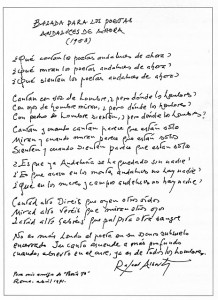 BALADA PARA LOS POETAS
ANDALUCES DE AHORA
¿Qué cantan los poetas andaluces de ahora?
¿Qué miran los poetas andaluces de ahora?
¿Qué sienten los poetas andaluces de ahora?
Cantan con voz de hombre, ¿pero dónde los hombres?
Con ojos de hombre miran, ¿pero dónde los hombres?
Con pecho de hombre sienten, ¿pero dónde los hombres?
Cantan, y cuando cantan parece que están solos
Miran, y cuando miran parece que están solos
Sienten, y cuando sienten parece que están solos
¿Es que ya Andalucía se ha quedado sin nadie?
¿Es que acaso en los montes andaluces no hay nadie?
¿Que en los mares y campos andaluces no hay nadie?
Cantad alto. Oiréis que oyen otros oídos
Mirad alto. Veréis que miran otros ojos
Latid alto. Sabréis que palpita otra sangre
No es más hondo el poeta en su oscuro subsuelo
encerrado. Su canto asciende a más profundo
cuando, abierto en el aire, ya es de todos los hombres.
Rafael Alberti
Para mis amigos de
Roma: abril